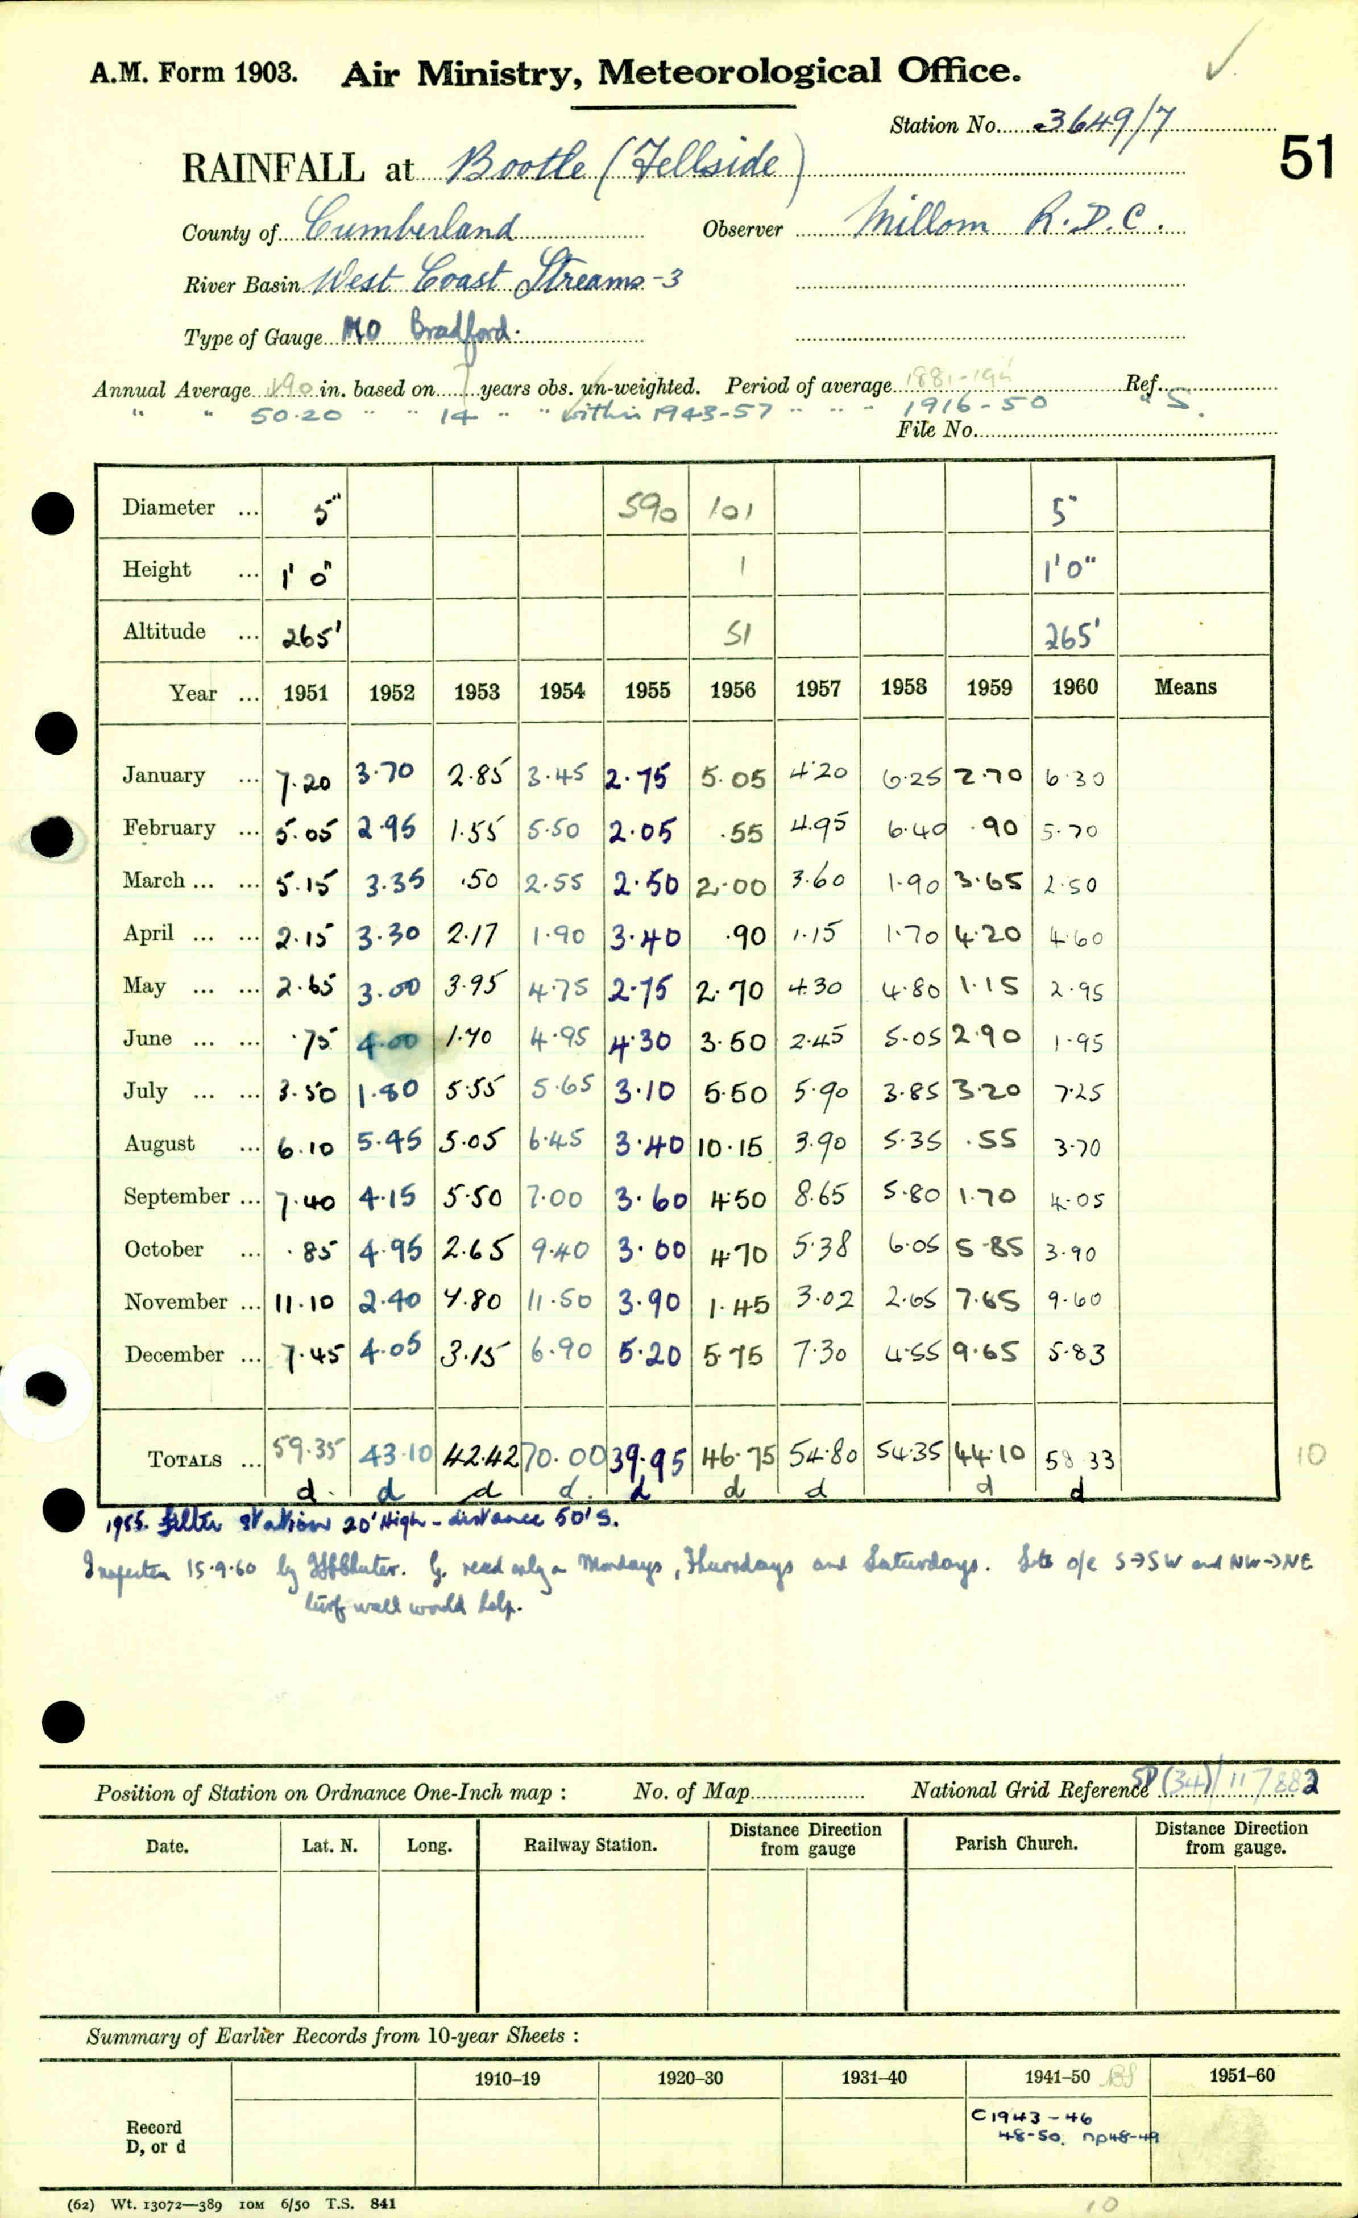 A.M. Form 1903. Air Ministry, Meteorological Office.
Station No. 3649/7
51
RAINFALL at Bootle (Fellside)
County of Cumberland Observer Millom R.D.C.
River Basin West Coast Streams -3
Type of Gauge MO Bradford.
Annual Average in. based on 7 years obs. un-weighted. Period of average Ref.
" " 50.20 " " 14 " " within 1943-57 " " " 1916-50 " S.
File No.
Diameter ... 5" 590 101 5"
Height ... 1' 0" 1 1'0"
Altitude ... 265' 51 265'
Year ... 1951 1952 1953 1954 1955 1956 1957 1958 1959 1960 Means
January ... 7.20 3.70 2.85 3.45 2.75 5.05 4.20 6.25 2.70 6.30
February ... 5.05 2.95 1.55 5.50 2.05 .55 4.95 6.40 .90 5.70
March ... ... 5.15 3.35 .50 2.55 2.50 2.00 3.60 1.90 3.65 2.50
April ... ... 2.15 3.30 2.17 1.90 3.40 .90 1.15 1.70 4.20 4.60
May ... ... 2.65 3.00 3.95 4.75 2.75 2.70 4.30 4.80 1.15 2.95
June ... ... .75 4.00 1.70 4.95 4.30 3.50 2.45 5.05 2.90 1.95
July ... ... 3.50 1.80 5.55 5.65 3.10 5.50 5.90 3.85 3.20 7.25
August ... 6.10 5.45 5.05 6.45 3.40 10.15 3.90 5.35 .55 3.70
September ... 7.40 4.15 5.50 7.00 3.60 4.50 8.65 5.80 1.70 4.05
October ... .85 4.95 2.65 9.40 3.00 4.70 5.38 6.05 5.85 3.90
November ... 11.10 2.40 7.80 11.50 3.90 1.45 3.02 2.65 7.65 9.60
December ... 7.45 4.05 3.15 6.90 5.20 5.75 7.30 4.55 9.65 5.83
TOTALS ... 59.35 43.10 42.42 70.00 39.95 46.75 54.80 54.35 44.10 58.33 10
d. d d d. d d d d d
1955. Filter station 20' High - distance 50' S.
Inspected 15.9.60 by G. read only on Mondays, Thursdays and Saturdays. Site o/e S→SW and NW→NE
turf wall would help.
Position of Station on Ordnance One-Inch map : No. of Map National Grid Reference (34)/117882
Date. Lat. N. Long. Railway Station. Distance Direction from gauge Parish Church. Distance Direction from gauge.
Summary of Earlier Records from 10-year Sheets :
1910–19 1920–30 1931–40 1941–50 1951–60
Record
D, or d
C1943-46
48-50. np48-49
(62) Wt. 13072—389 10M 6/50 T.S. 841
10